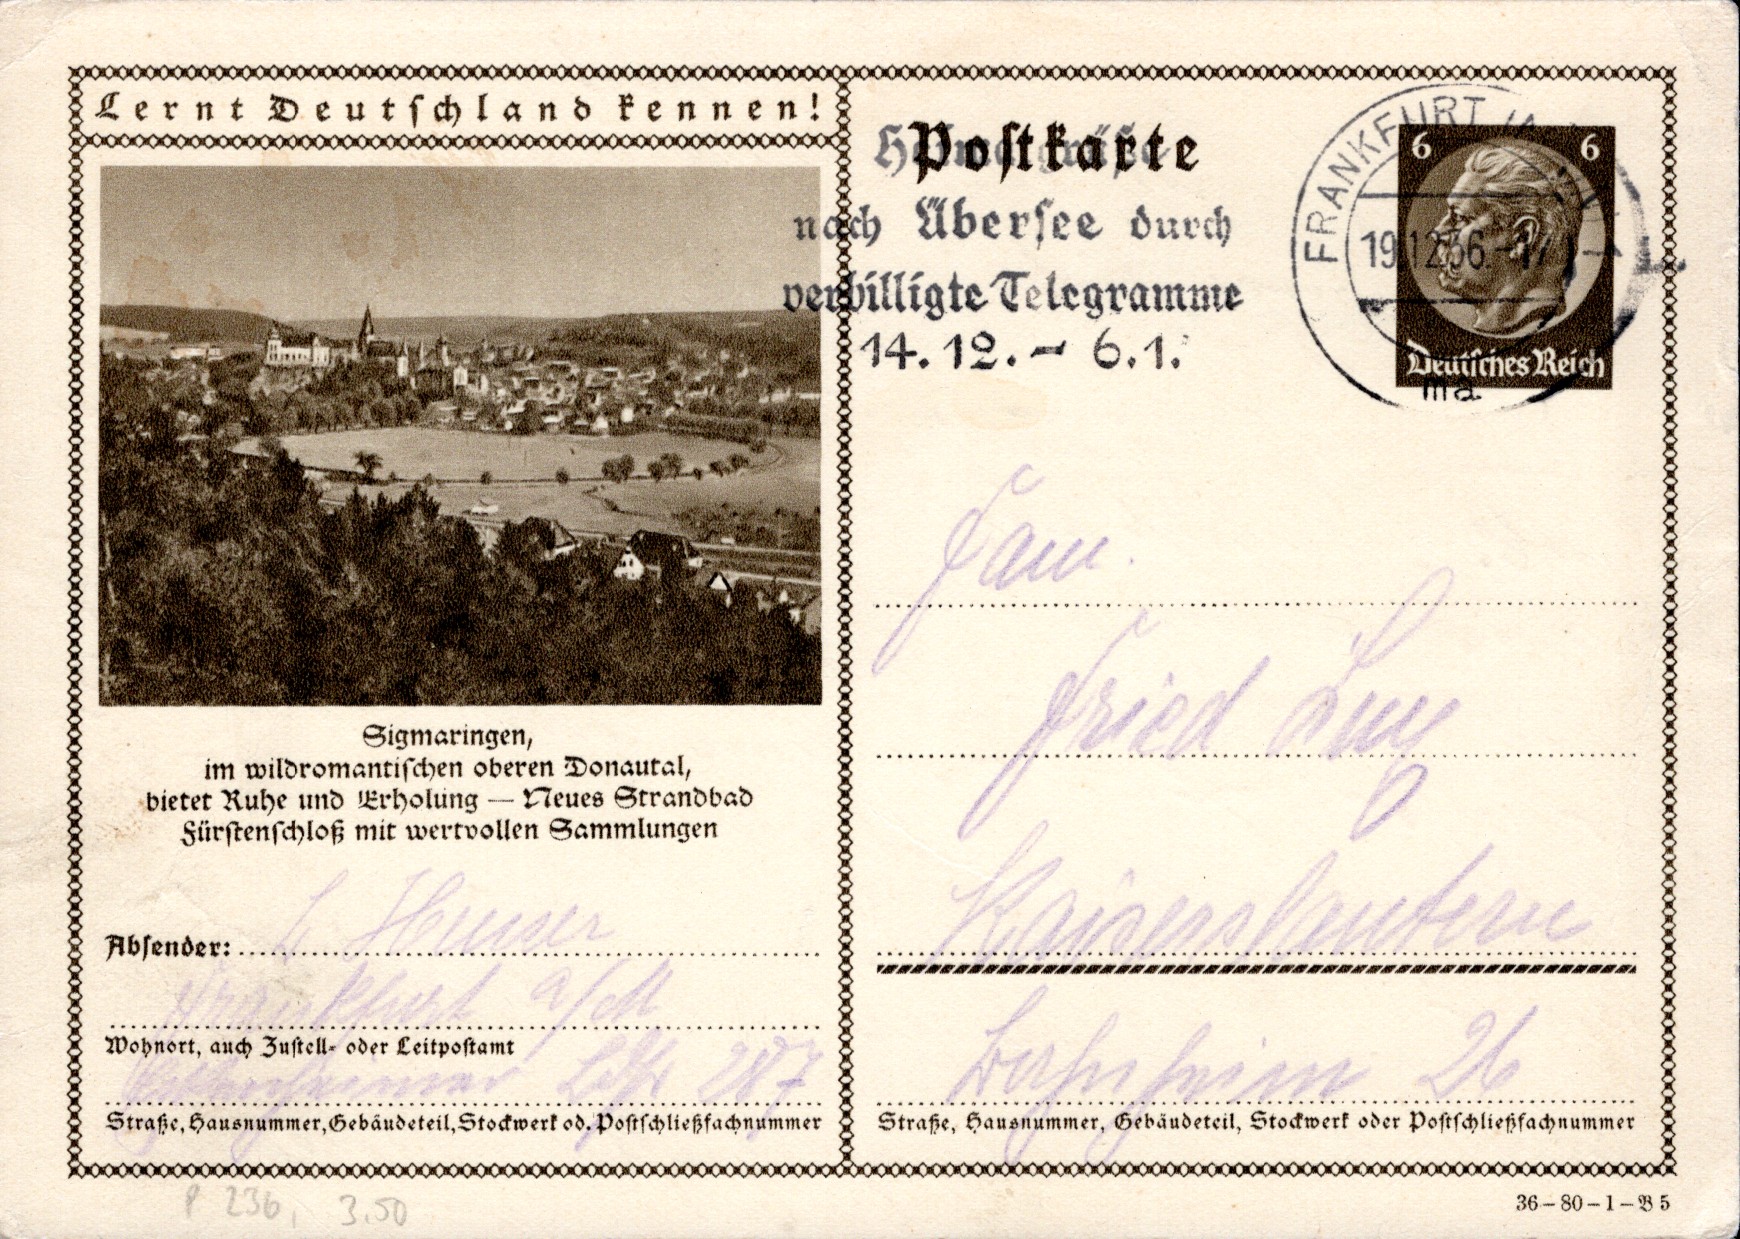 Lernt Deutschland kennen!
Sigmaringen,
im wildromantischen oberen Donautal,
bietet Ruhe und Erholung — Neues Strandbad
Fürstenschloß mit wertvollen Sammlungen
Absender:
Frankfurt a/M
Wohnort, auch Zustell- oder Leitpostamt
287
Straße, Hausnummer, Gebäudeteil, Stockwerk od. Postschließfachnummer
Postkarte
nach Übersee durch
verbilligte Telegramme
14.12. - 6.1.
FRANKFURT
19.12.36.-17
ma
6 6
Deutsches Reich
Fam.
Fried
Kaiserslautern
26
Straße, Hausnummer, Gebäudeteil, Stockwerk oder Postschließfachnummer
P 236, 3.50
36-80-1-B 5